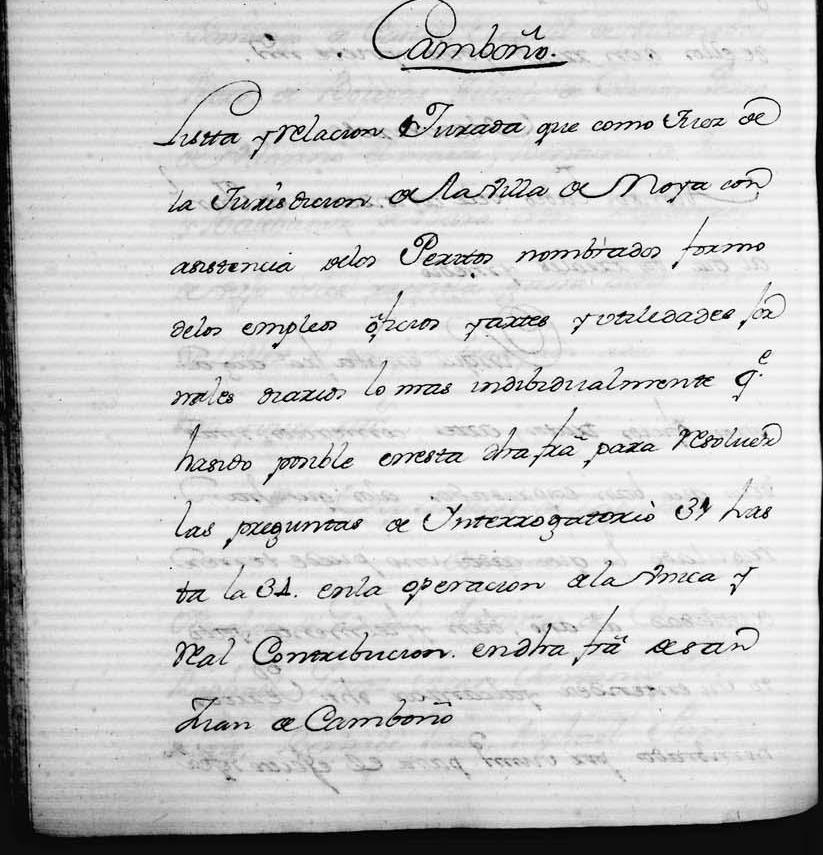 Camboño.
Listta y Relacion Jurada que como Juez de
la Jurisdicion de la villa de Noya con
asistencia delos Peritos nombrados formo
delos empleos oficios y artes y utiledades jor
nales diarios lo mas indibidualmente q.e
hasido posible enesta dha fra para Resoluer
las preguntas de Ynterrogatorio 31 has
ta la 31. enla operacion dela vnica y
Real Contribucion. endha fra desan
Juan de Camboño